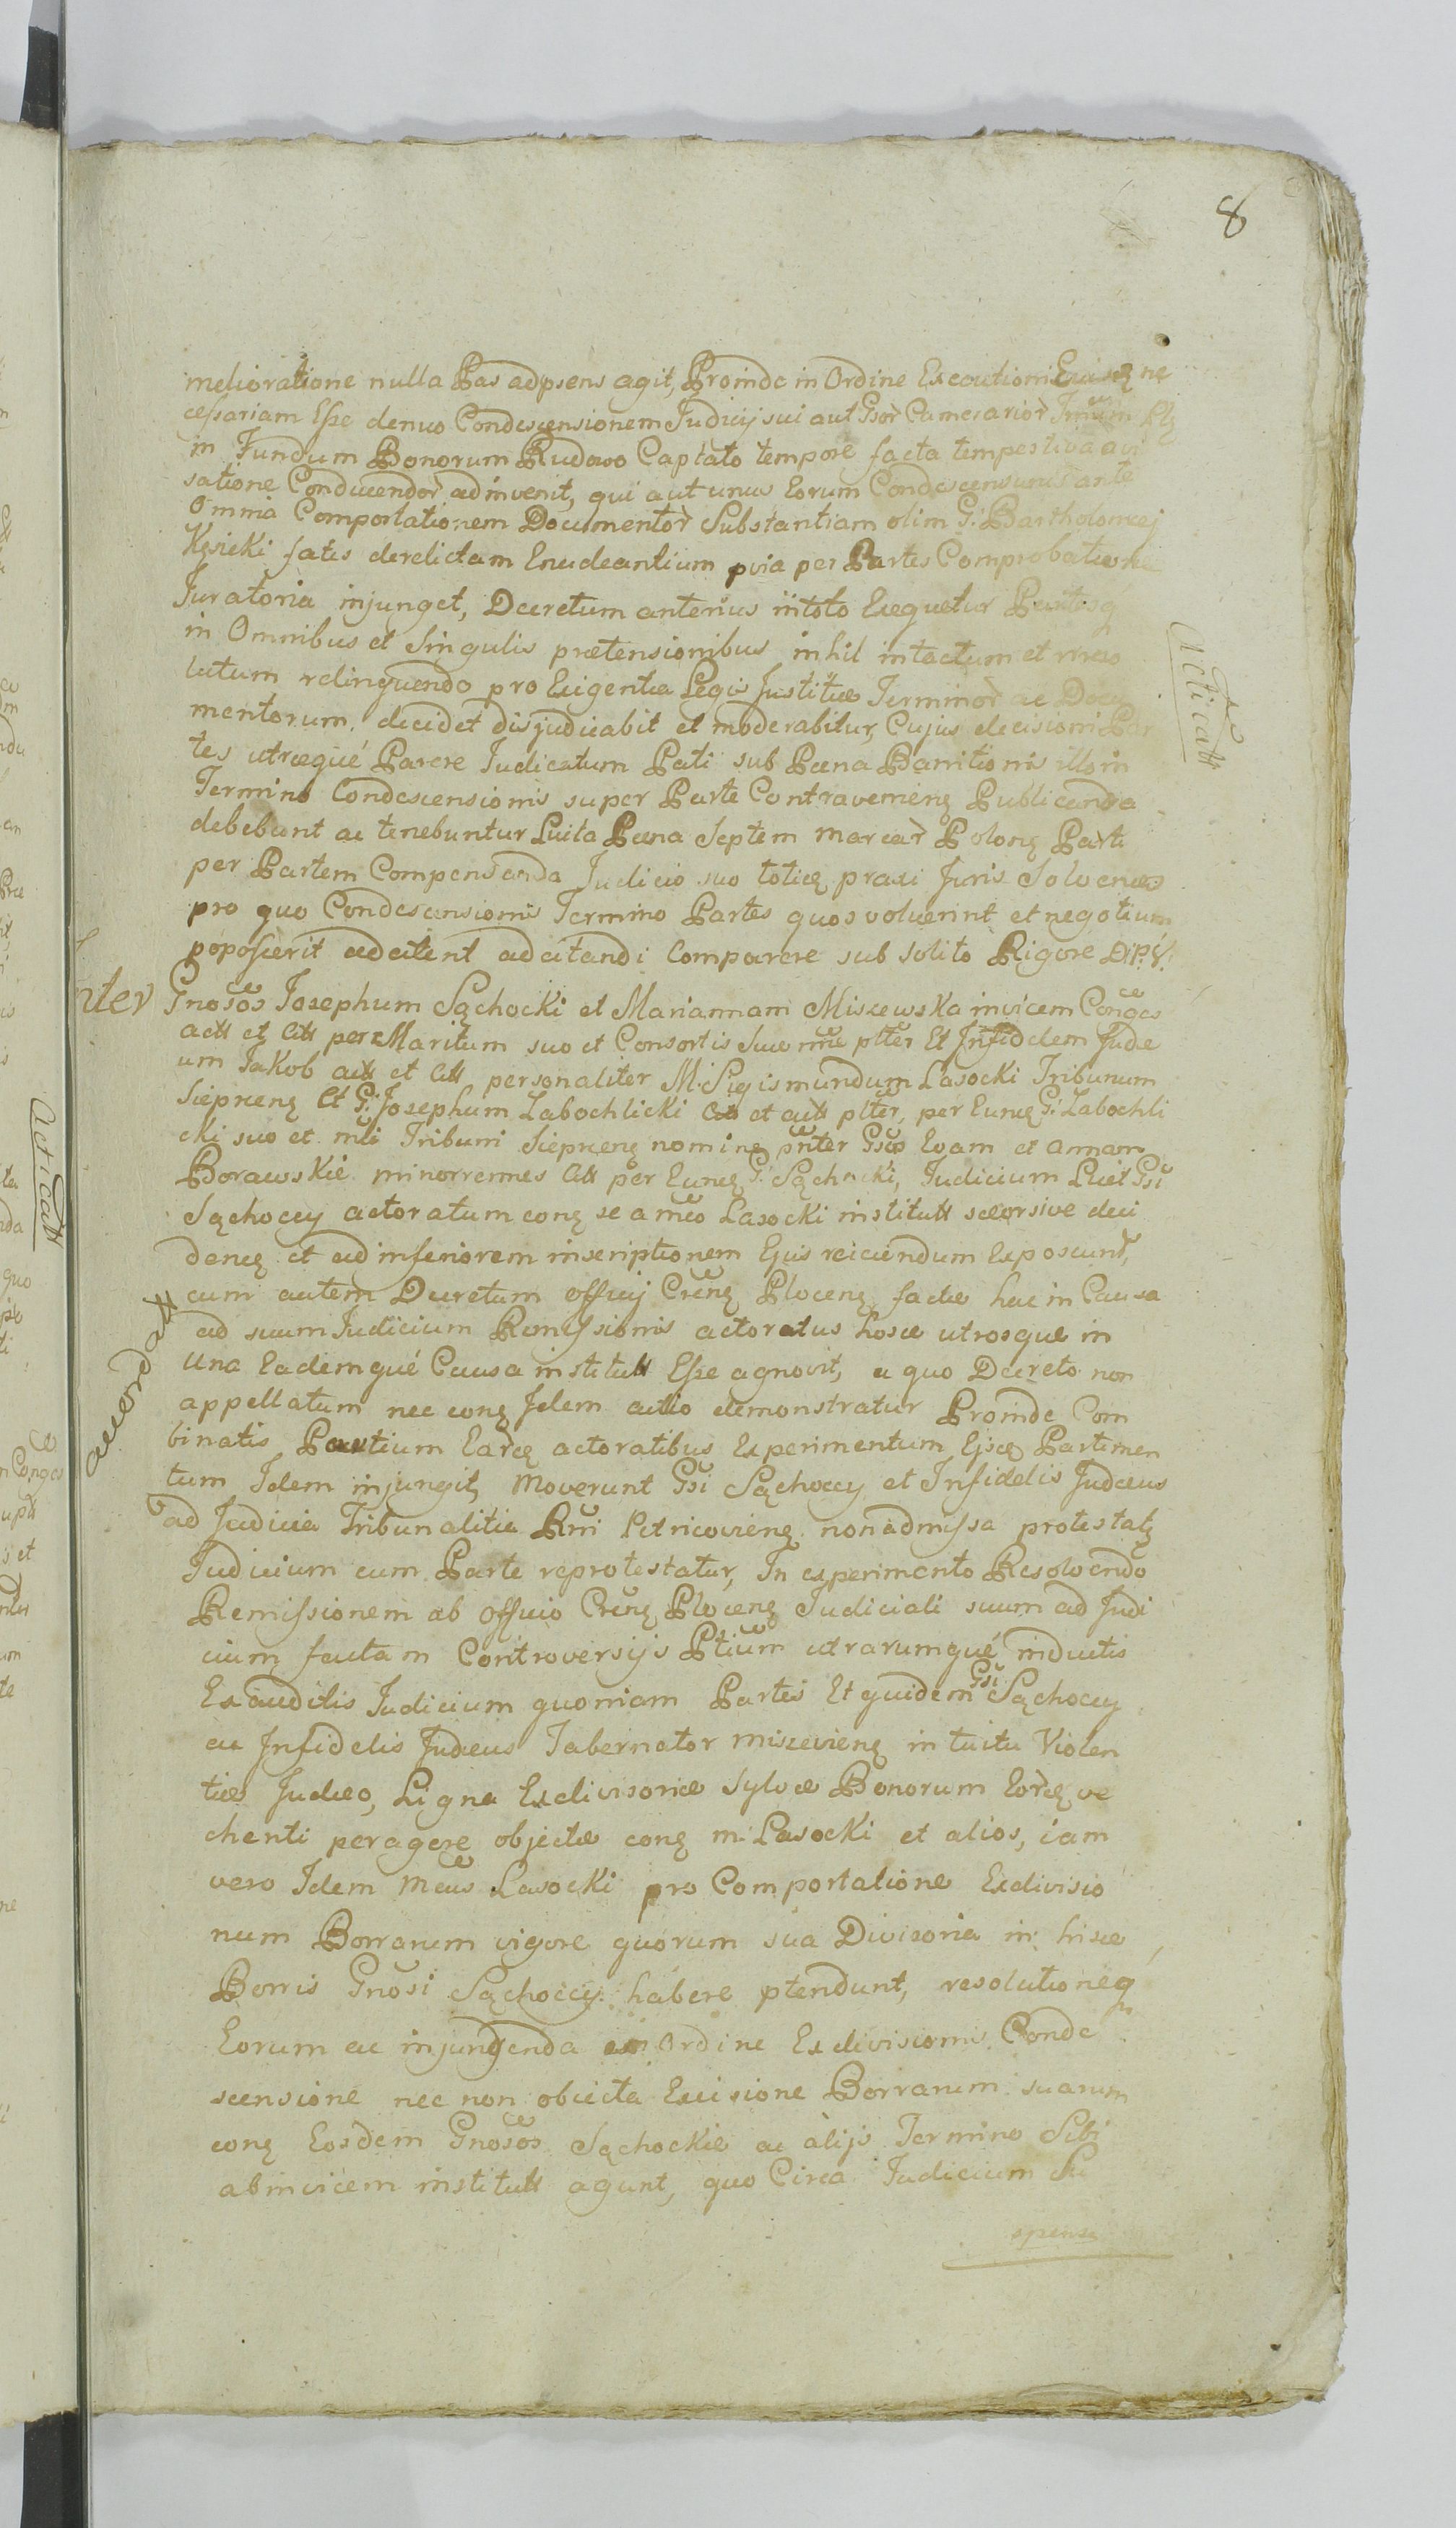 8
melioratione nulla Pars adpsens agit, Proinde in Ordine Executionis ne
cessariam Esse denuo Condescensionem Judicij sui aut Gsor Camerarior
in Fundum Bonorum Rudowo Captato tempore facta tempestiva avi
satione Conducendor adinvenit, qui aut unus Eorum Condescensurus ante
Omnia Comportationem Documentor Substantiam olim G: Bartholomej
Kęsicki fatis derelictam Enudeantium pvia per Partes Comprobatione
Juratoria injunget, Decretum anterius intoto Exequetur Partesq
in Omnibus et Singulis prætensionibus inhil intactum et irreso
lutum relinquendo pro Exigentia Legis Justitiæ Terminor ac Docu
mentorum decidet disjudicabit et moderabitur, Cujus decisioni Par
tes utræque Parere Judicatum Pati sub Pœna Bannitionis illo in
Termino Condescensionis super Parte Contraveniens Publicanda
debebunt ac tenebuntur Luita Pæna Septem marcar Polon Parti
per Partem Compensanda Judicio suo toties praxi Juris Solvenes
pro quo Condescensionis Termino Partes quos voluerint et negotium
poposcerit adcitent adcitandi Comparere sub solito Rigore D:P:V:
Acticatt
nter Gnosos Josephum Sąchocki et Mariannam Miszewska invicem Conges
actt et Citt per Maritum suo et Consortis Suæ nne plter Et Infidelem Judæ
um Jakob actt et Citt personaliter M: Sigismundum Lasocki Tribunum
Siepcen Et G: Josephum Zabochlicki Citt et actt plter, per Eund G: Zabochli
cki suo et mli Tribuni Siepcen nomine pnter Gsos Evam et Annam
Borawskie minorrennes Citt per Eund G: Sąchocki, Judicium Licet Gsi
Sąchoccy actoratum con se a mco Lasocki institutt seorsive deci
dend et ad inferiorem inscriptionem Ejus reiciendum Exposcunt,
cum autem Decretum officij Cren Plocen factæ hac in Causa
ad suum Judicium Remissionis actoratus hosce utrosque in
Una Eademqué Causa institutt Esse agnovit, a quo Decreto non
appellatum nec con Idem actio demonstratur Proinde Com
accordatt
binatis Partium Earde actoratibus Experimentum Ejsd Partimen
tum Idem injungit, moverunt Gsi Sąchoccy et Infidelis Judæus
ad Judicia Tribunalitia Rni Petricovien non admissa protestat
Judicium cum Parte reprotestatur, In experimento Resolvendo
Remissionem ab Officio Cren Plocen Judiciali suum ad Judi
cium factam Controversijs Ptium utrarumqué inductis
Exauditis Judicium quoniam Partes Et quidem Gsi Sąchoccy
ac Infidelis Judæus Tabernator miszevien intuitu Violen
tiæ Judæo, Ligna Exdivisoriæ Sylvæ Bonorum Eord ve
chenti peragere objectæ con m: Lasocki et alios, iam
vero Idem Mcus Lasocki pro Comportatione Exdivisio
num Bonorum vigore quorum sua Divisoria in hisce
Bonis Gnosi Sąchoccy habere ptendunt, resolutioneq
Eorum ac injungenda ex Ordine Exdivisionis Conde
scensione nec non objecta Excisione Borrarum suarum
con Eosdem Gnosos Sąchockie ac alijs Termino Sibi
abinvicem institutt agunt, quo Circa Judicium Su
spensa